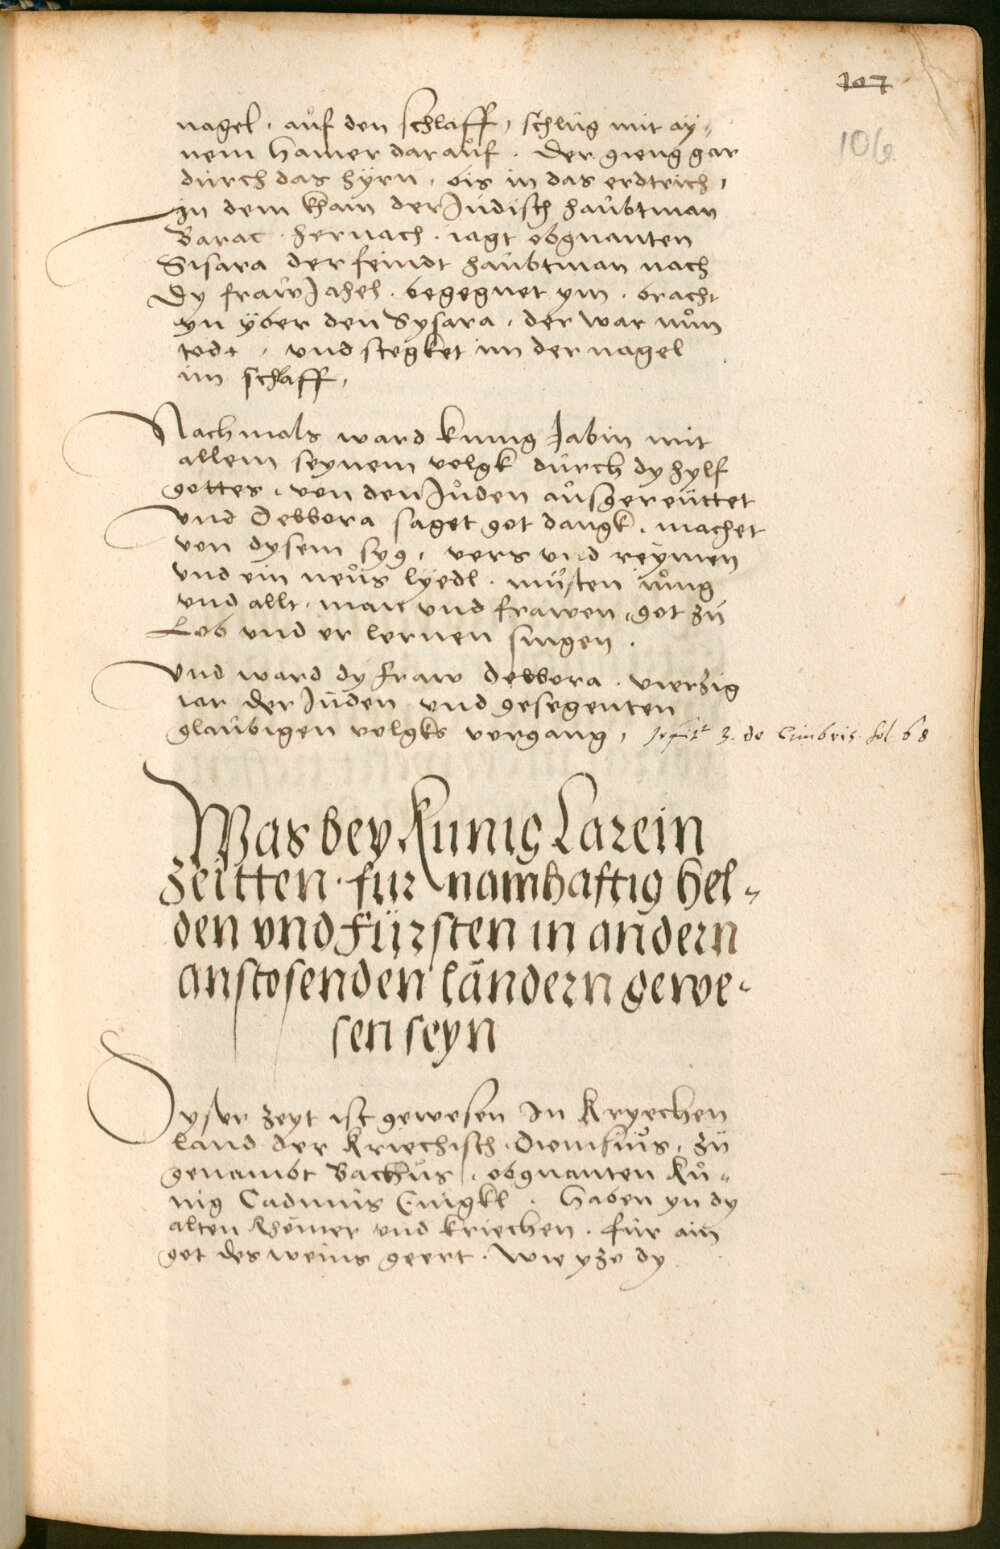 107
106
nagel · auf den schlaff, schlug mit ay„
nem hamer darauf · der gieng gar
durch das hyrn, bis in das erdtrich,
in dem kham der Judisch haubtman
Barac · hernach · iagt obgnanten
Sisara der feindt haubtman nach
Dy fraw Jahel · begegnet ym · bracht
yn yber den Sysara, der war nun
todt, und stegket im der nagel
im schlaff,
Nachmals ward kunig Jabin mit
allem seynem volgk durch dy hylf
gottes, von den Juden ausgereuttet
Und Debbora saget got dangk · machet
von dysem syg, vers und reymen
und ein neus lyedl · musten iung
und allt · man und frawen, got zu
Lob und er lernen singen ·
Und ward dy fraw Debbora · vierzig
iar der Juden und gesegenten
glaubigen volgks vorgang, 3. de Cimbris fol 68
Was bey Kunig Larein
zeitten · fur namhaftig hel„
den vnd Fürsten in andern
anstosenden ländern gewe„
sen seyn
Dyser zeyt ist gewesen In Kryechen
land der Kriechisch · Dionisius, zu
genambt Bachus, obgnanten Ku„
nig Cadmus Enigkl · Haben yn dy
alten Rhömer und kriechen · für ain
got des weins geert · Wie yze dy